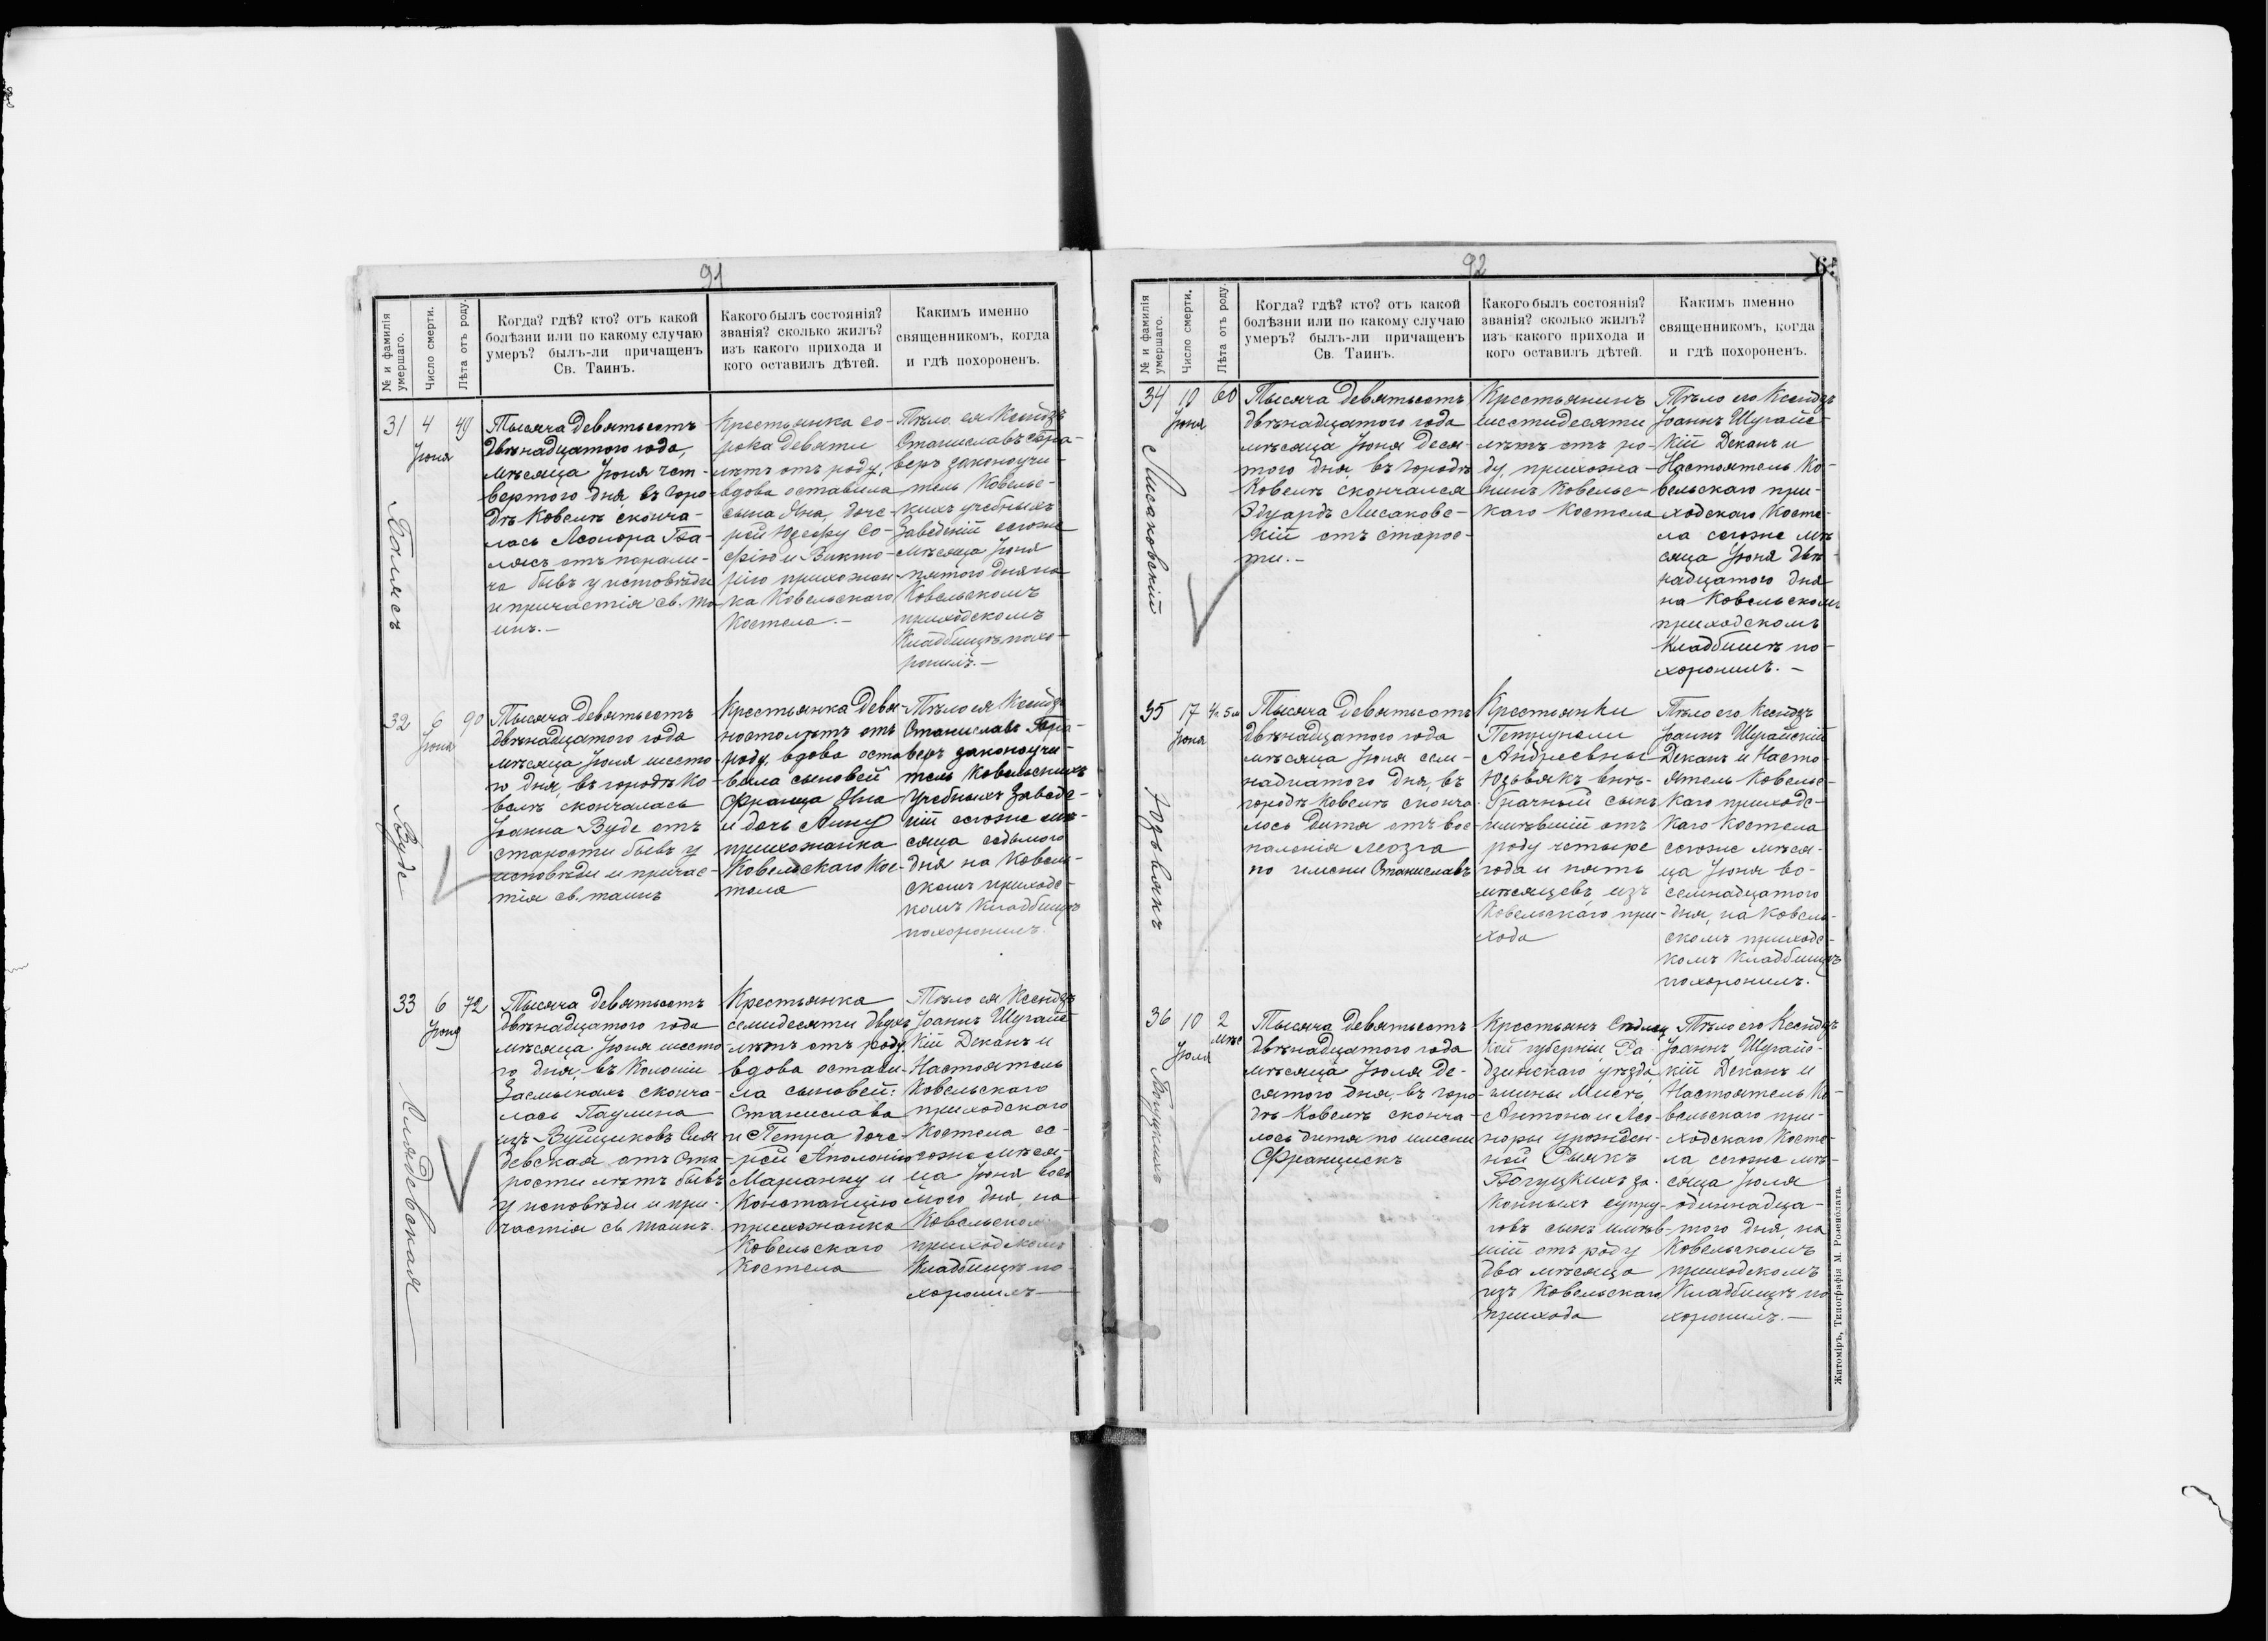 91
№ и фамилія
умершаго.
Число смерти.
Лѣта отъ роду.
Когда? гдѣ? кто? отъ какой
болѣзни или по какому случаю
умеръ? былъ-ли причащенъ
Св. Таинъ.
Какого былъ состоянія?
званія? сколько жилъ?
изъ какого прихода и
кого оставилъ дѣтей.
Какимъ именно
священникомъ, когда
и гдѣ похороненъ.
31
4
Іюня
49
Тысяча девятьсотъ
двѣнадцатого года,
мѣсяца Іюня чет-
вертого дня, въ горо-
дѣ Ковелѣ сконча-
лась Леонора
отъ парали-
ча бывъ у исповѣди
и причастія св. та-
инъ.-
Крестьянка со-
рока девяти
лѣтъ отъ роду,
вдова оставила
сына Яна, доче-
рей Юзефу Со-
фію и Викто-
рію прихожан-
ка Ковельскаго
Костела.-
Тѣло ея Ксендзъ
Станиславъ
законоучи-
тель Ковельс-
кихъ учебныхъ
Заведеній сегоже
мѣсяца Іюня
пятого дня на
Ковельскомъ
приходскомъ
Кладбищѣ похо-
ронилъ.-
32
6
Іюня
90
Вуде
Тысяча девятьсотъ
двѣнадцатого года
мѣсяца Іюня шесто-
го дня, въ городѣ Ко-
велѣ скончалась
Іоанна Вуде отъ
старости бывъ у
исповѣди и причас-
тія св. таинъ
Крестьянка девя-
ностолѣтъ отъ
роду, вдова оста
вила сыновей
Франца Яна
и дочь Анну
прихожанка
Ковельскаго Кос-
тела
Тѣло ея Ксендзъ
Станиславъ
законоучи-
тель Ковельскихъ
Учебныхъ Заведе-
ній сегоже мѣ-
сяца седьмого
дня на Ковель-
скомъ приходс-
комъ Кладбищѣ
похоронилъ.
33
6
Іюня
72
Сядевская
Тысяча девятьсотъ
двѣнадцатого года
мѣсяца Іюня шесто-
го дня, въ Колоніи
Засмыкахъ сконча-
лась Паулина
изъ Вуйциковъ Сяя
девская отъ Ста
рости лѣтъ бывъ
у исповѣди и при-
частія св. таинъ.
Крестьянка
семидесяти двухъ
лѣтъ отъ роду,
вдова остави-
ла сыновей:
Станислава
и Петра, доче-
рей Аполонію
Марианну и
Констанцію
прихожанка
Ковельскаго
Костела
Тѣло ея Ксендзъ
Іоаннъ Шугайс
кій Деканъ и
Настоятель
Ковельскаго
приходскаго
Костела се-
гоже мѣся-
ца Іюня вось
мого дня на
Ковельском
приходскомъ
Кладбищѣ по-
хоронилъ-
92
6
№ и фамилія
умершаго.
Число смерти.
Лѣта отъ роду.
Когда? гдѣ? кто? отъ какой
болѣзни или по какому случаю
умеръ? былъ-ли причащенъ
Св. Таинъ.
Какого былъ состоянія?
званія? сколько жилъ?
изъ какого прихода и
кого оставилъ дѣтей.
Какимъ именно
священникомъ, когда
и гдѣ похороненъ.
34
10
Іюня
60
Лисаковскій
Тысяча девятьсотъ
двѣнадцатого года
мѣсяца Іюня деся-
того дня, въ городѣ
Ковелѣ скончался
Эдуардъ Лисаковс-
кій отъ старос-
ти.-
Крестьянинъ
шестидесяти
лѣтъ отъ ро-
ду, прихожа-
нинъ Ковельс-
каго Костела
Тѣло его Ксендзъ
Іоаннъ Шугайс-
кій Деканъ и
Настоятель Ко-
вельскаго при-
ходскаго Косте-
ла сегоже мѣ
сяца Іюня двѣ-
надцатого дня
на Ковельскомъ
приходскомъ
Кладбищѣ по-
хоронилъ.-
35
17
Іюня
4л 5м
Юзьвякъ
Тысяча девятьсотъ
двѣнадцатого года
мѣсяца Іюня сем-
надцатого дня, въ
городѣ Ковелѣ сконча-
лось дитя отъ вос-
паленія мозга
по имени Станиславъ
Крестьянки
Петрунели
Андреевны
Юзьвякъ внѣ-
брачный сынъ
имѣвшій отъ
роду четыре
года и пять
мѣсяцевъ, изъ
Ковельскаго при-
хода
Тѣло его Ксендзъ
Іоаннъ Шугайскій
Деканъ и Насто-
ятель Ковельс-
каго приходс-
каго Костела
сегоже мѣся-
ца Іюня во-
семнадцатого
дня, на Ковель-
скомъ приходс-
комъ Кладбищѣ
похоронилъ.
36
10
Іюля
2
мѣс
Богуцкихъ
Тысяча девятьсотъ
двѣнадцатого года
мѣсяца Іюля де-
сятого дня, въ горо-
дѣ Ковелѣ сконча-
лось дитя по имени
Францискъ
Крестьянъ Сѣдлец
кой губерніи, Ра-
дзинскаго уѣзда,
гмины Мисѣ,
Антона и Лео-
норы урожден-
ной Рыякъ
Богуцкихъ за-
конныхъ супру-
говъ сынъ имѣв-
шій отъ роду
два мѣсяца
изъ Ковельскаго
прихода
Тѣло его Ксендзъ
Іоаннъ Шугайс-
кій Деканъ и
Настоятель Ко-
вельскаго при-
ходскаго Косте-
ла сегоже мѣ-
сяца Іюля
одиннадца-
того дня, на
Ковельскомъ
приходскомъ
Кладбищѣ по
хоронилъ.-
Житоміръ, Типографія М. Розенблата.